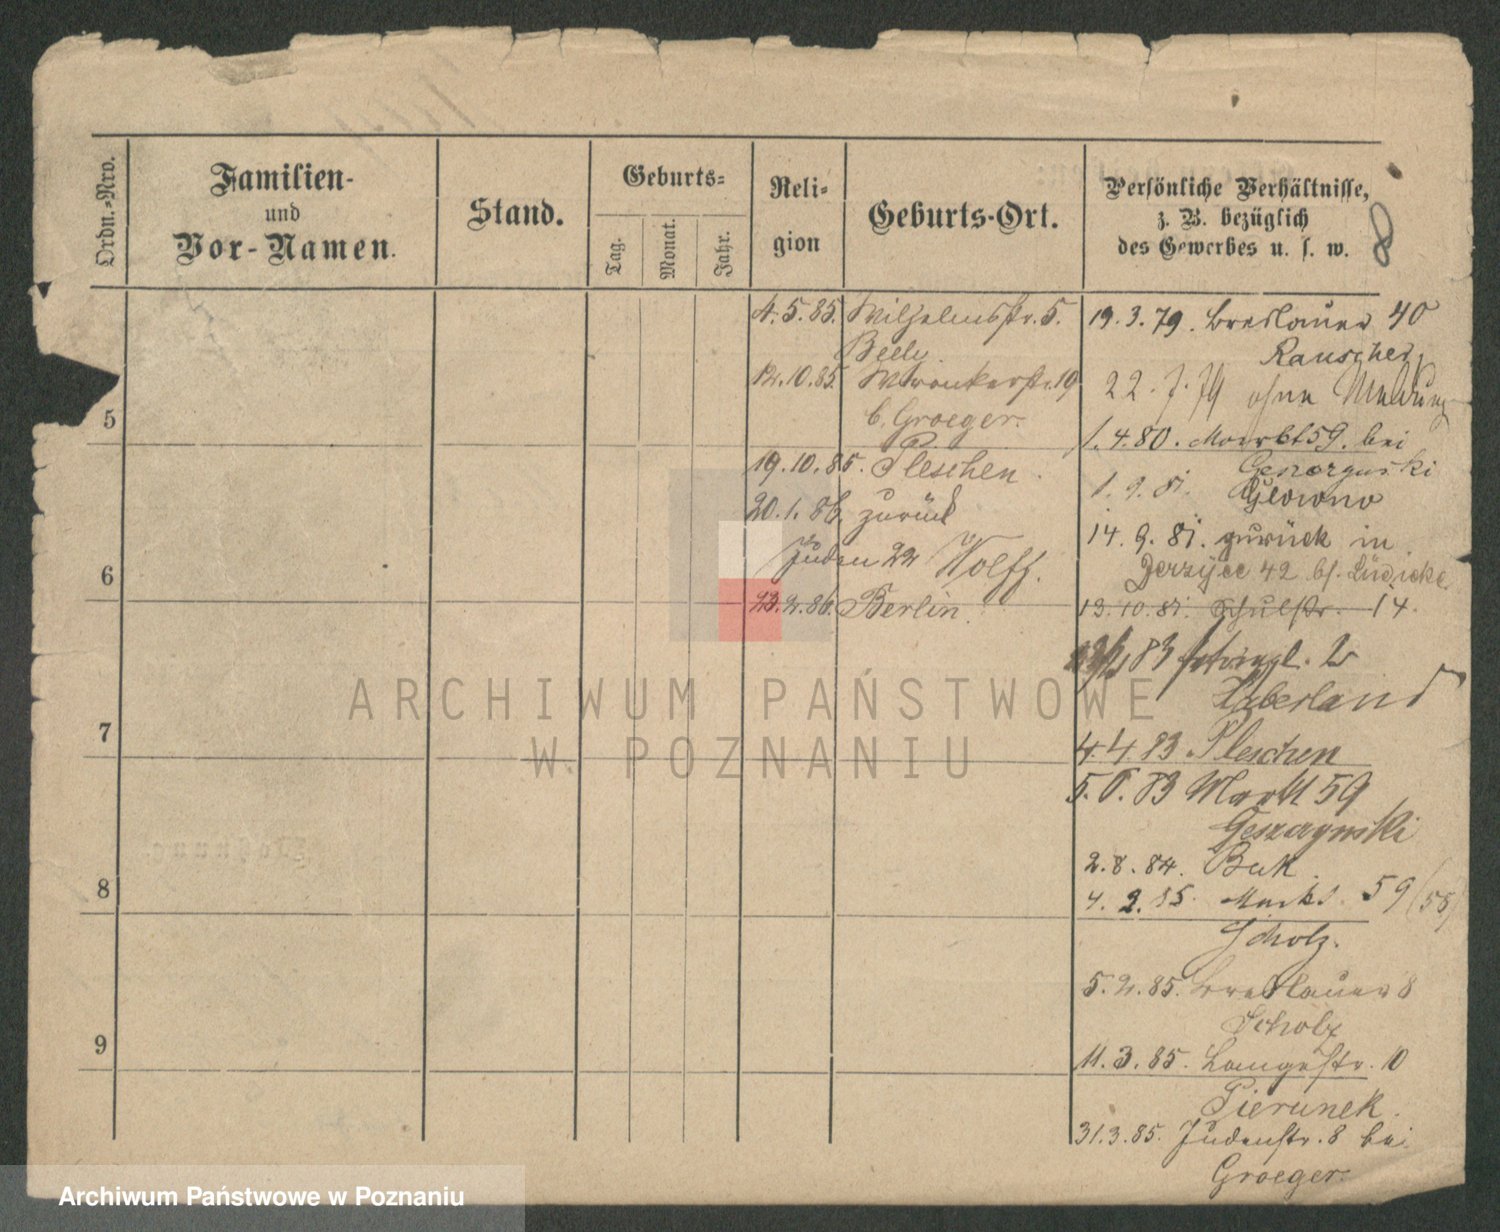 Ordn.-Nro.
Familien-
und
Vor-Namen.
Stand.
Geburts-
Tag.
Monat.
Jahr.
Reli-
gion
Geburts-Ort.
Persönliche Verhältnisse,
z. B. bezüglich
des Gewerbes u. s. w.
8
5
6
7
8
9
4.5.85. Wilhelmstr. 5.
Beely.
12.10.85. Wronkerstr. 19
b. Groeger.
19.10.85. Pleschen.
20.1.86. zurück
Juden 22 Wolff.
23.2.86. Berlin.
19.3.79. Breslauer 40
Rauscher,
22.7.79 ohne Meldung
1.4.80. Markt 59. bei
1.9.81. Glowno
14.9.81. zurück in
Jerzyce 42 bf. Lüdicke
13.10.81. Schulstr. 14.
83 2
Haberland
4.4.83. Pleschen
5.6.83 Markt 59
2.8.84. Buk
4.2.85. Markt. 59 (58)
Scholz.
5.2.85. Breslauer 8
Scholz
11.3.85. Langestr. 10
Pierunek.
31.3.85. Judenstr. 8 bei
Groeger.
ARCHIWUM PAŃSTWOWE
W POZNANIU
Archiwum Państwowe w Poznaniu